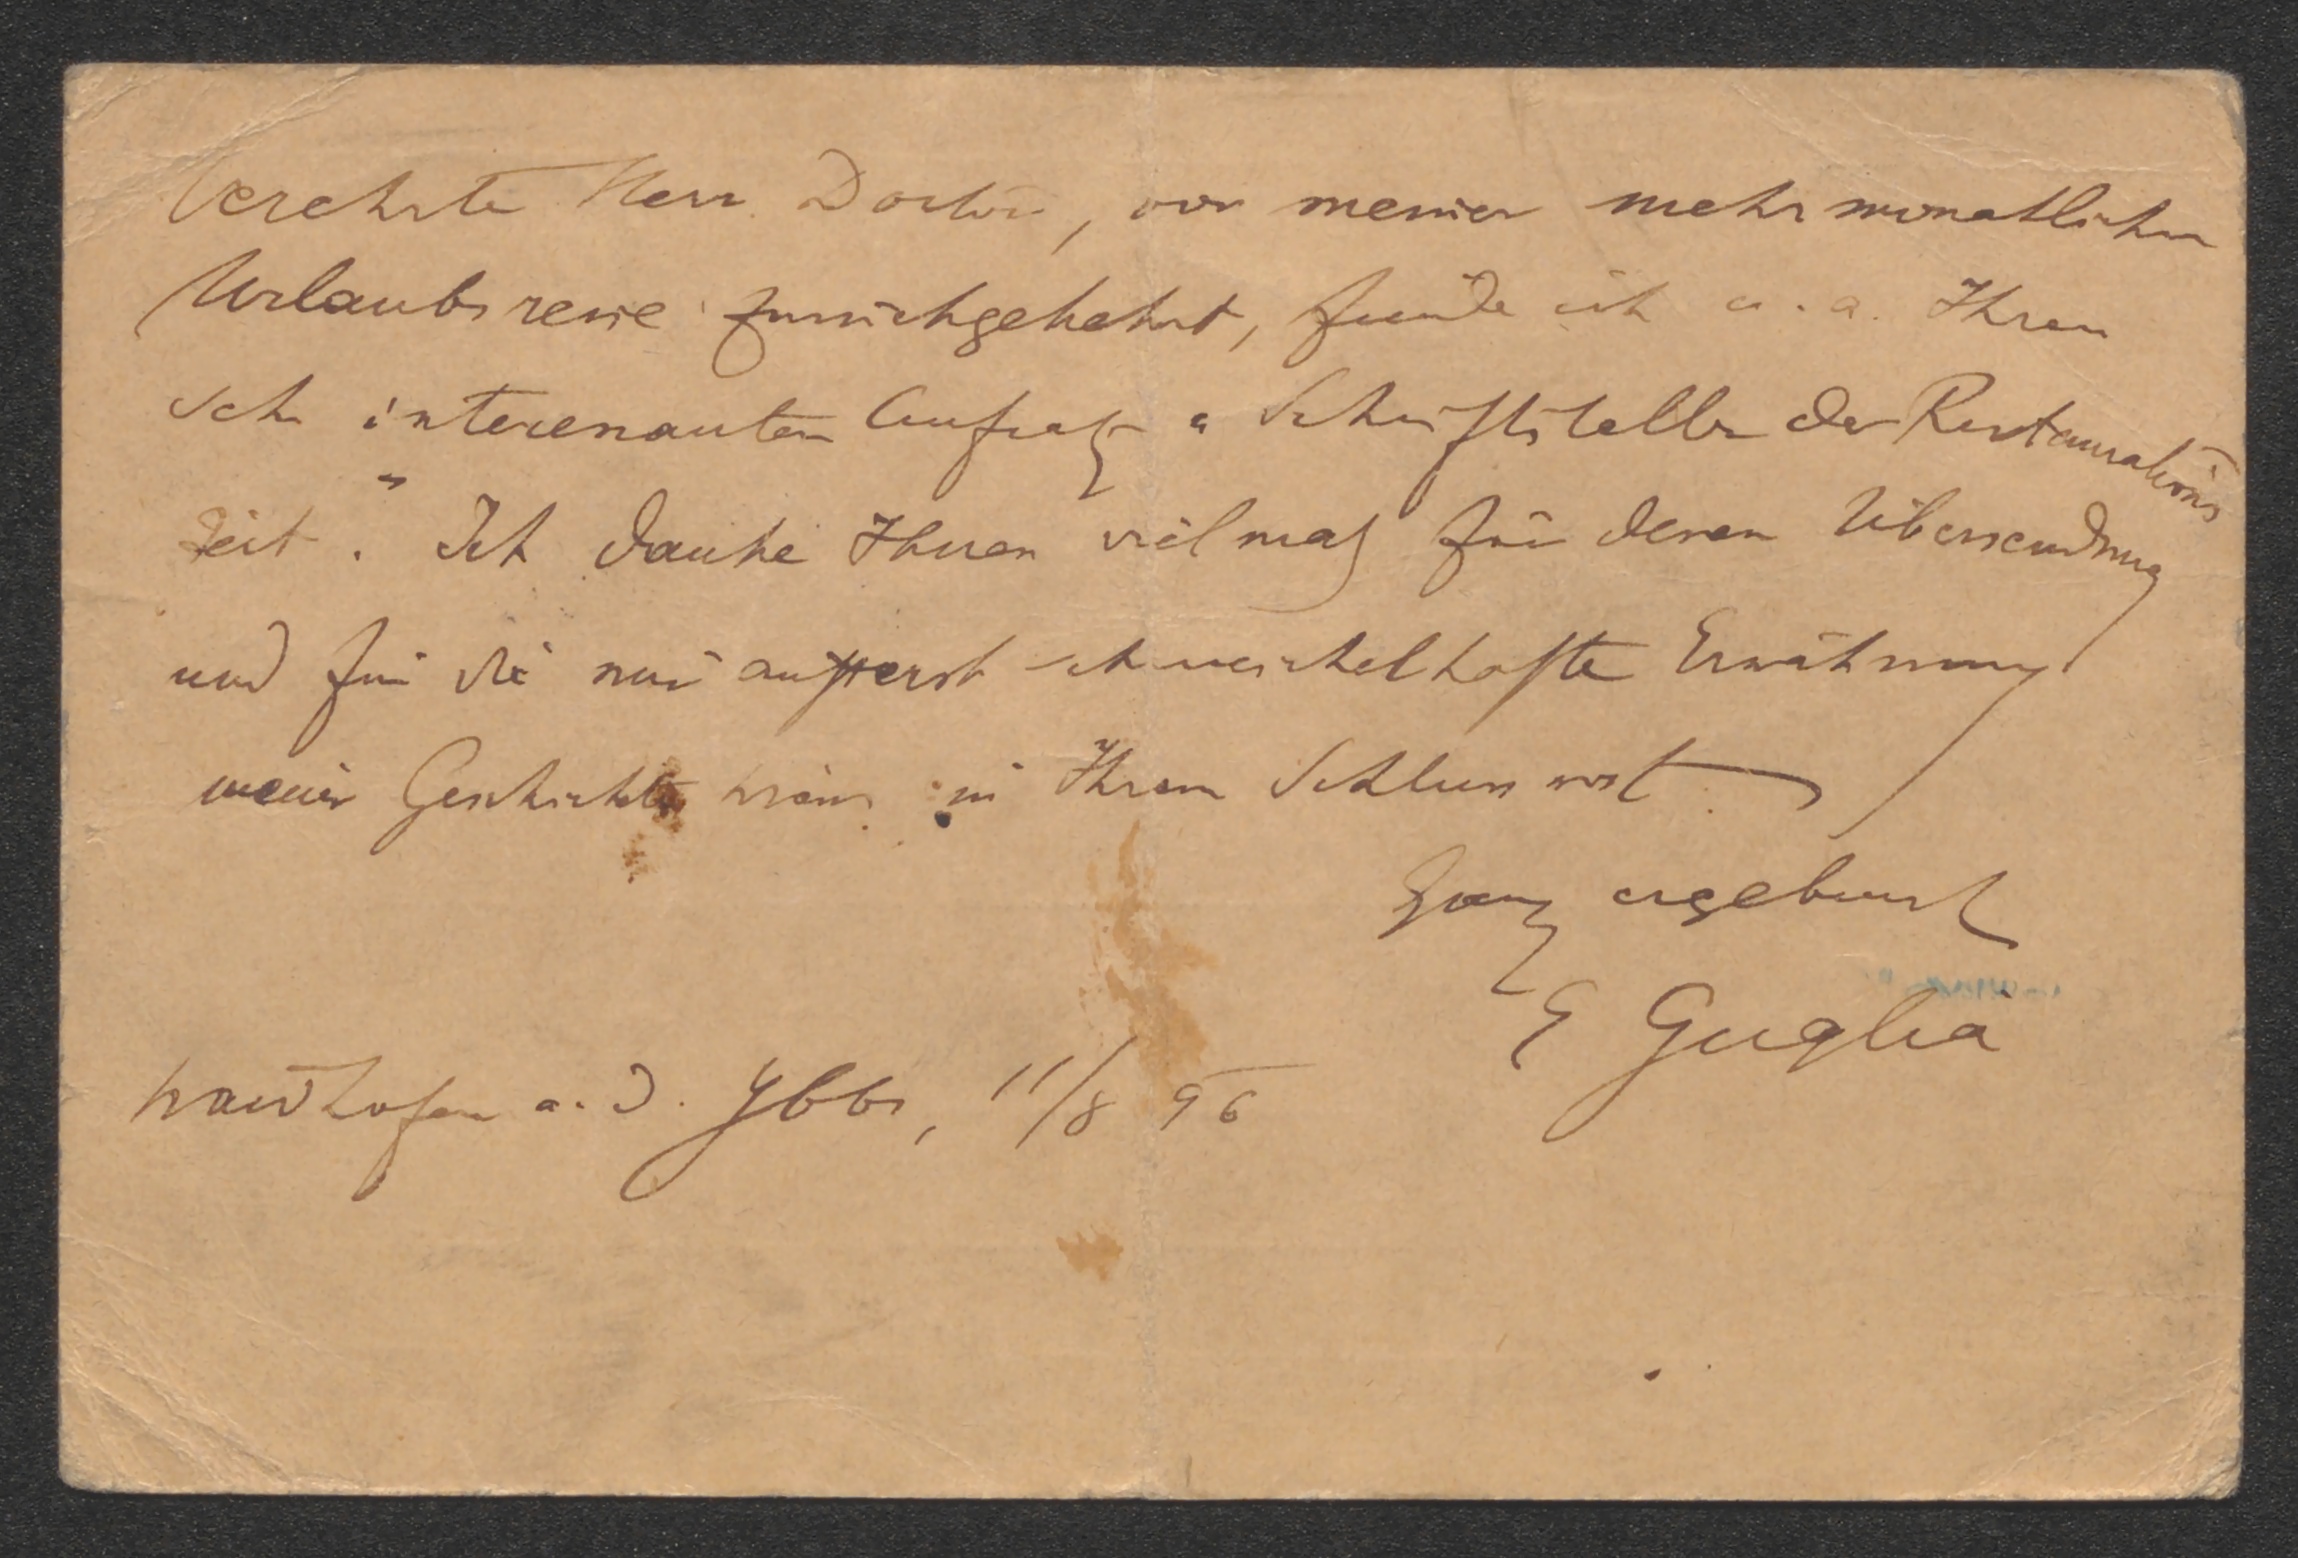 Verehrter Herr Doctor, von meiner mehrmonatlichen
Urlaubsreise zurückgekehrt, finde ich u. a. Ihren
sehr interessanten Aufsatz „Schriftsteller der Restaurations
zeit“. Ich danke Ihnen vielmals für deren Übersendung
und für die mir äusserst schmeichelhafte Erwähnung
meiner Geschichte in Ihrem Schlusswort
Ganz ergebenst
E Guglia
Waidhofen a. d. Ybbs, 11/8 96